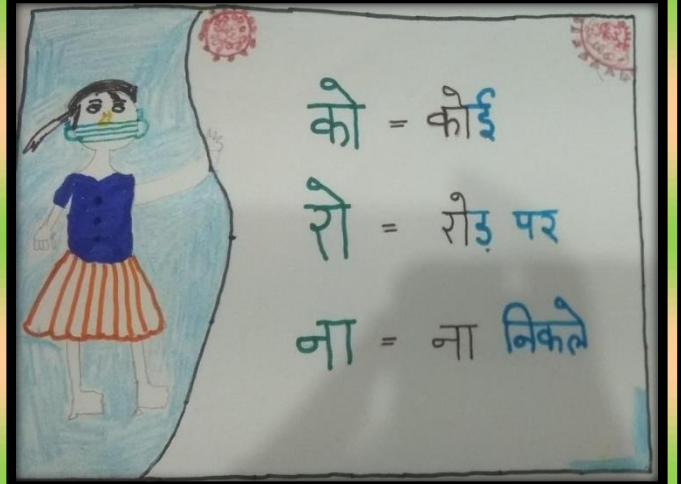 को = कोई
रो = रोड़ पर
ना = ना निकले